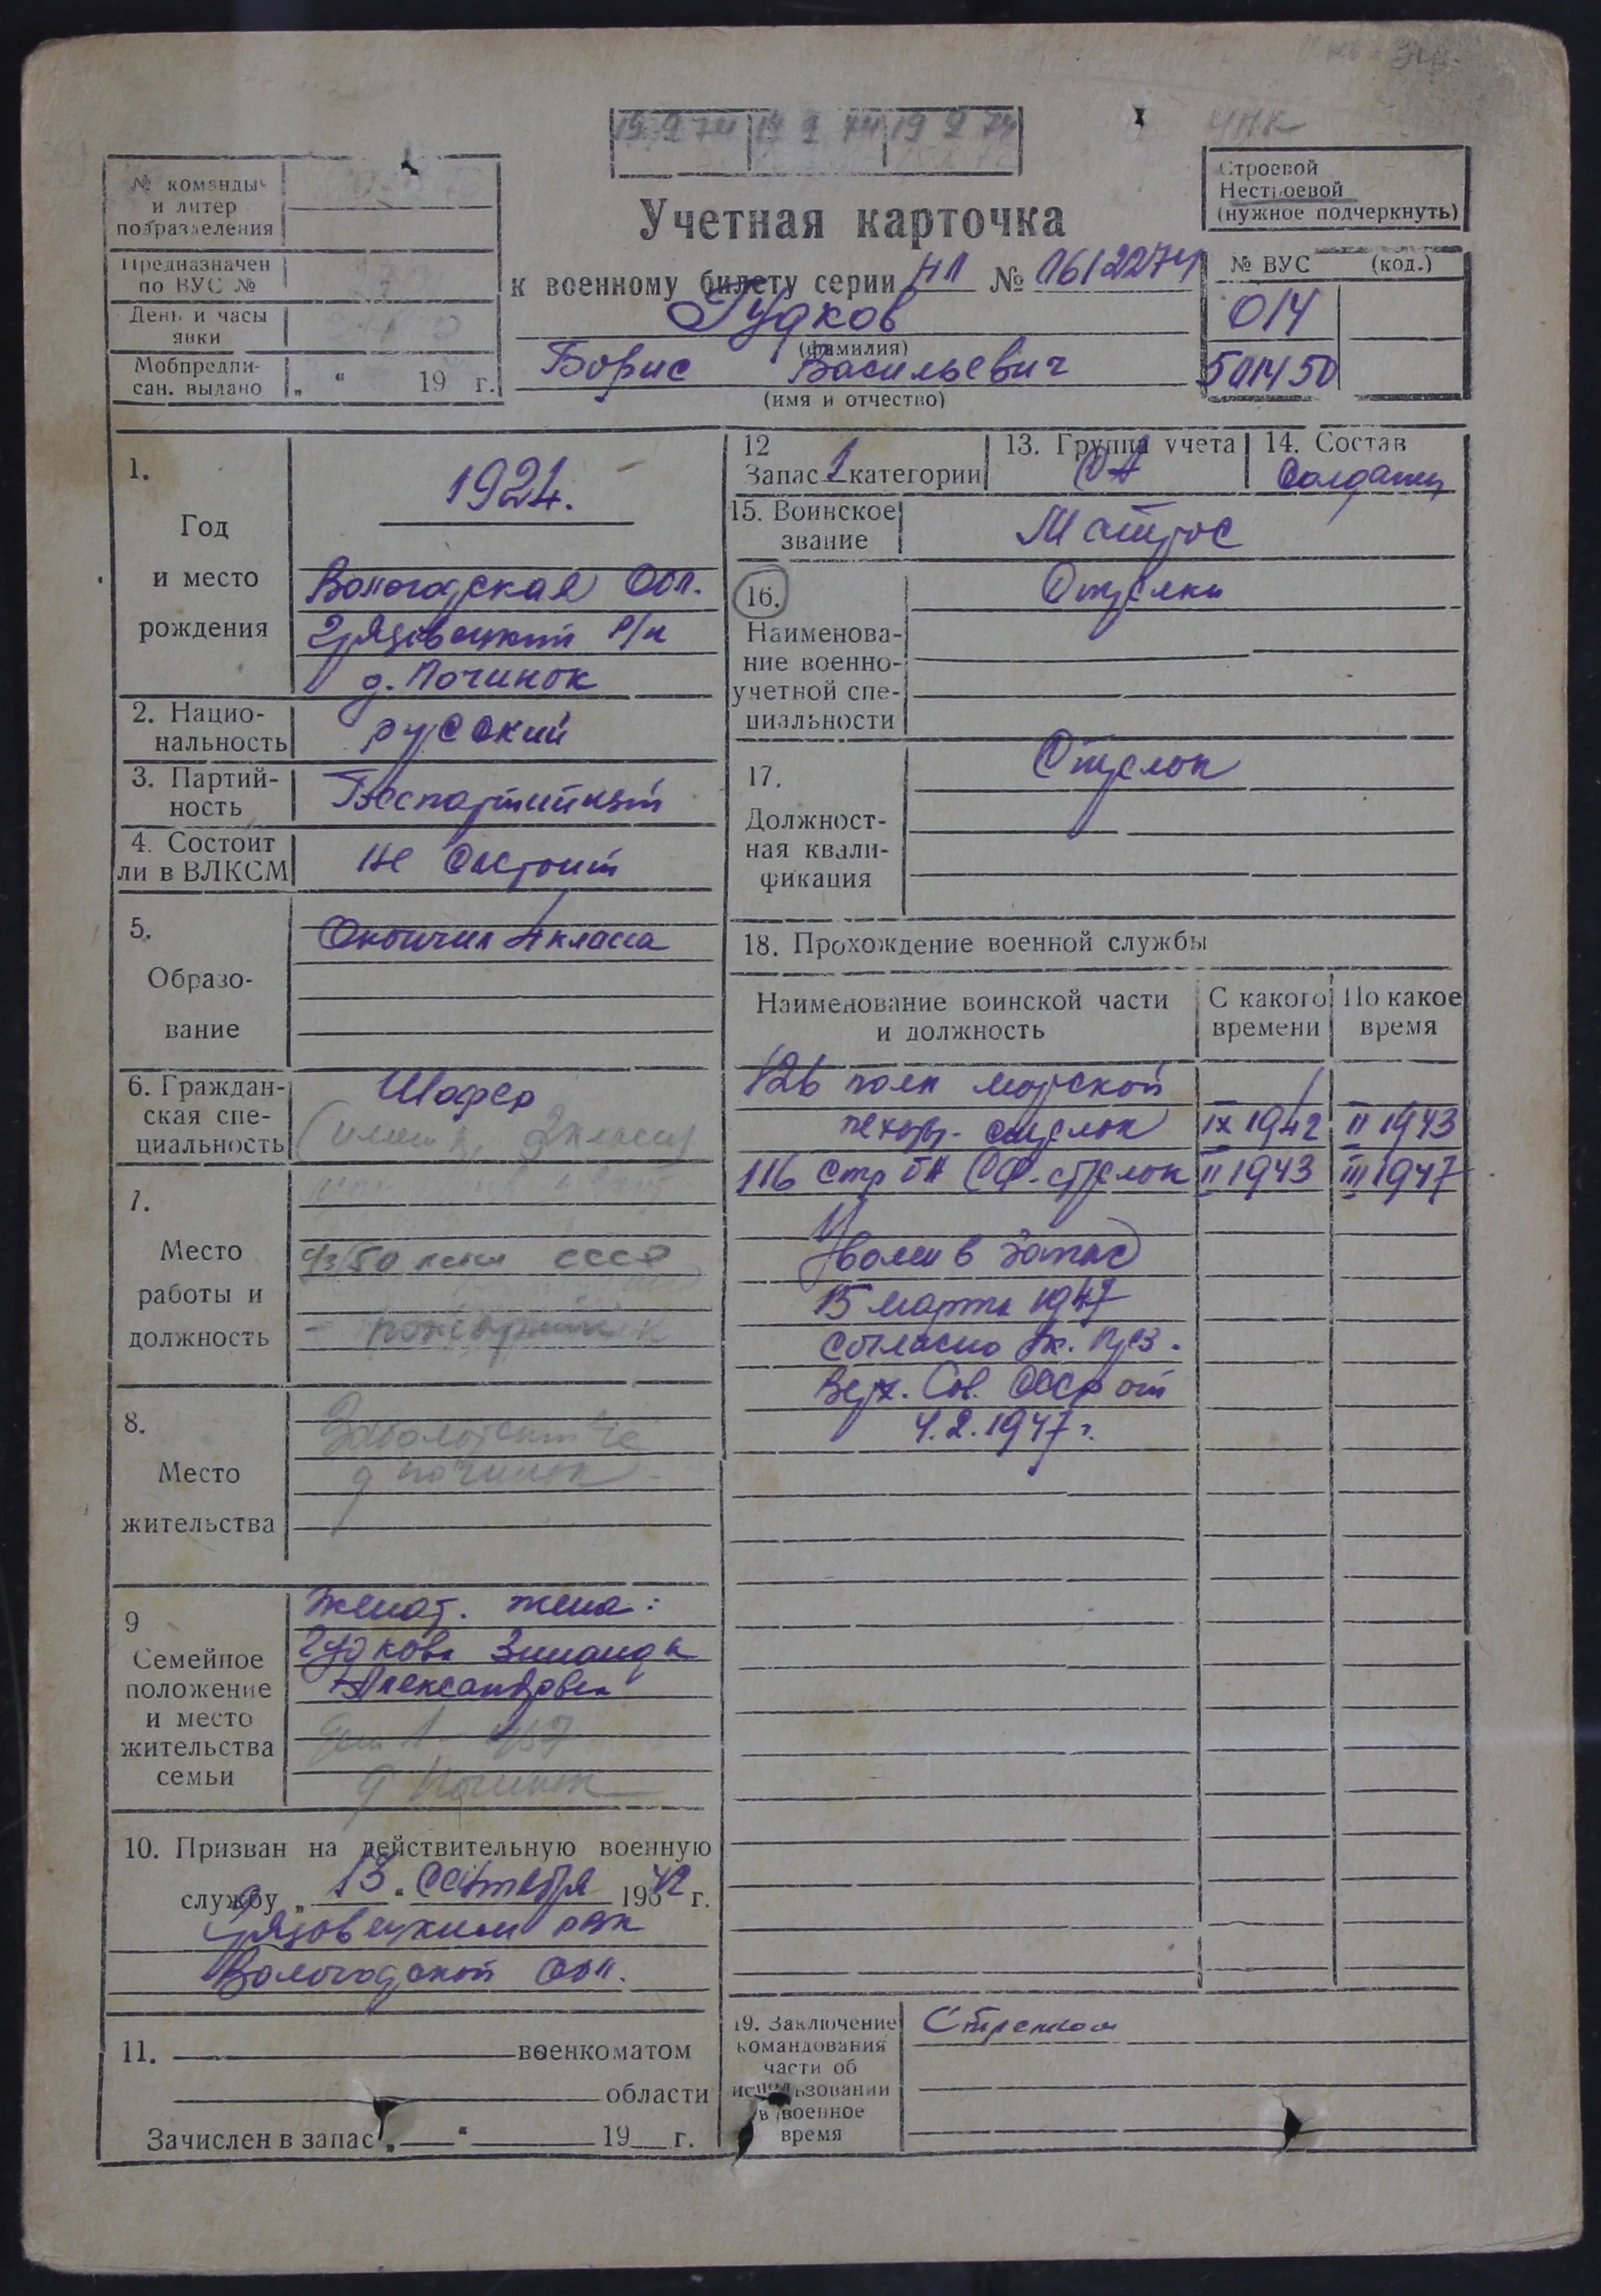 19 9 74 19 9 74 19 9 74
ЧПК
№ команды
и литер
подразделения
Предназначен
по ВУС №
День и часы
явки
Мобпредпи-
сан. выдано „ “ 19 г.
Учетная карточка
к военному билету серии НП № 1612274
Гудков
(фамилия)
Борис Васильевич
(имя и отчество)
Строевой
Нестроевой
(нужное подчеркнуть)
№ ВУС (код.)
014
501450
1.
Год
и место
рождения
1924.
Вологодская Обл.
Грязовецкий р/н
д. Починок
2. Нацио-
нальность
русский
3. Партий-
ность
Беспартийный
4. Состоит
ли в ВЛКСМ
Не состоит
5.
Образо-
вание
Окончил 4 класса
6. Граждан-
ская спе-
циальность
Шофер
2 класса
7.
Место
работы и
должность
к/з 50 лет СССР
8.
Место
жительства
д Починок
9
Семейное
положение
и место
жительства
семьи
Женат. жена:
Гудкова Зинаида
Александровна
д Починок
10. Призван на действительную военную
службу „ 13 “ Сентября 1942 г.
Грязовецким рвк
Вологодской обл.
11. военкоматом
области
Зачислен в запас „ “ 19 г.
12
Запас 1 категории
13. Группа учета
СА
14. Состав
Солдаты
15. Воинское
звание
Матрос
16.
Наименова-
ние военно-
учетной спе-
циальности
Стрелки
17.
Должност-
ная квали-
фикация
Стрелок
18. Прохождение военной службы
Наименование воинской части
и должность
С какого
времени
По какое
время
126 полк морской
пехоты - стрелок IX 1942 II 1943
116 стр бн СФ - стрелок II 1943 III 1947
Уволен в запас
15 марта 1947
согласно Ук. През.
Верх. Сов. СССР от
4.2.1947 г.
19. Заключение
командования
части об
использовании
в военное
время
Стрелком